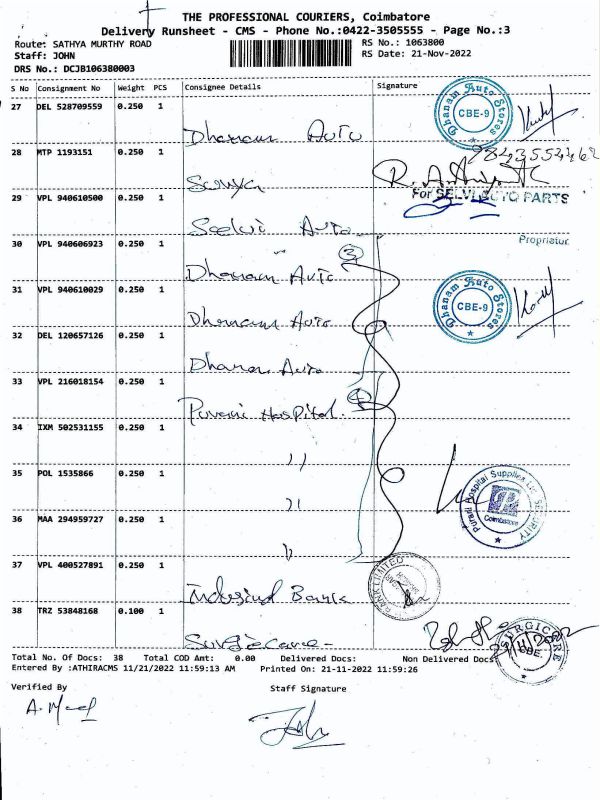 THE PROFESSIONAL COURIERS, Coimbatore
Delivery Runsheet - CMS - Phone No.:0422-3505555 - Page No.:3
Route: SATHYA MURTHY ROAD RS No.: 1063800
Staff: JOHN RS Date: 21-Nov-2022
DRS No.: DCJB106380003
S No Consignment No Weight PCS Consignee Details Signature
27 DEL 528709559 0.250 1 Dhanam Auto
Dhanam Auto Stores CBE-9
28 MTP 1193151 0.250 1 Surya
29 VPL 940610500 0.250 1 Selvi Auto
For SELVI AUTO PARTS
Proprietor
30 VPL 940606923 0.250 1 Dhanam Auto
3
31 VPL 940610029 0.250 1 Dhanam Auto
Dhanam Auto Stores CBE-9
32 DEL 120657126 0.250 1 Dhanam Auto
33 VPL 216018154 0.250 1 Hospital.
4
34 IXM 502531155 0.250 1 "
35 POL 1535866 0.250 1 "
Hospital Supplies SECURITY
Coimbatore
36 MAA 294959727 0.250 1 "
37 VPL 400527891 0.250 1 Indusind Bank
BANK LIMITED
38 TRZ 53848168 0.100 1 Surgicare
SURGICARE CBE.
21/11/2022
Total No. Of Docs: 38 Total COD Amt: 0.00 Delivered Docs: Non Delivered Docs
Entered By :ATHIRACMS 11/21/2022 11:59:13 AM Printed On: 21-11-2022 11:59:26
Verified By Staff Signature